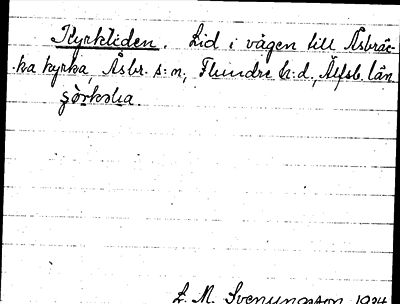 Kyrkliden. Lid i vägen till Åsbräc-
ka kyrka, Åsbr. s:n, Flundre h:d., Älfsb. län
L. M. Svenungsson 1924